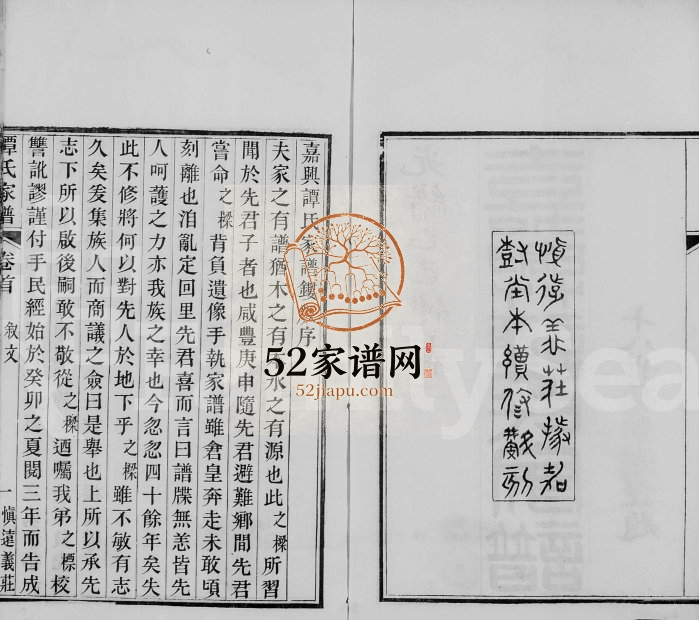 慎遠義莊據耘
對堂本續修斆刻
嘉興譚氏家譜鋟 序
夫家之有譜猶木之有 水之有源也此之樑所習
聞於先君子者也咸豐庚申隨先君避難鄉間先君
嘗命之樑背負遺像手執家譜雖倉皇奔走未敢頃
刻離也洎亂定回里先君喜而言曰譜牒無恙皆先
人呵護之力亦我族之幸也今忽忽四十餘年矣失
此不修將何以對先人於地下乎之樑雖不敏有志
久矣爰集族人而商議之僉曰是舉也上所以承先
志下所以啟後嗣敢不敬從之樑迺囑我弟之標校
讐訛謬謹付手民經始於癸卯之夏閱三年而告成
譚氏家譜 卷首 敘文 一 慎遠義莊
52家谱网
52jiapu.com